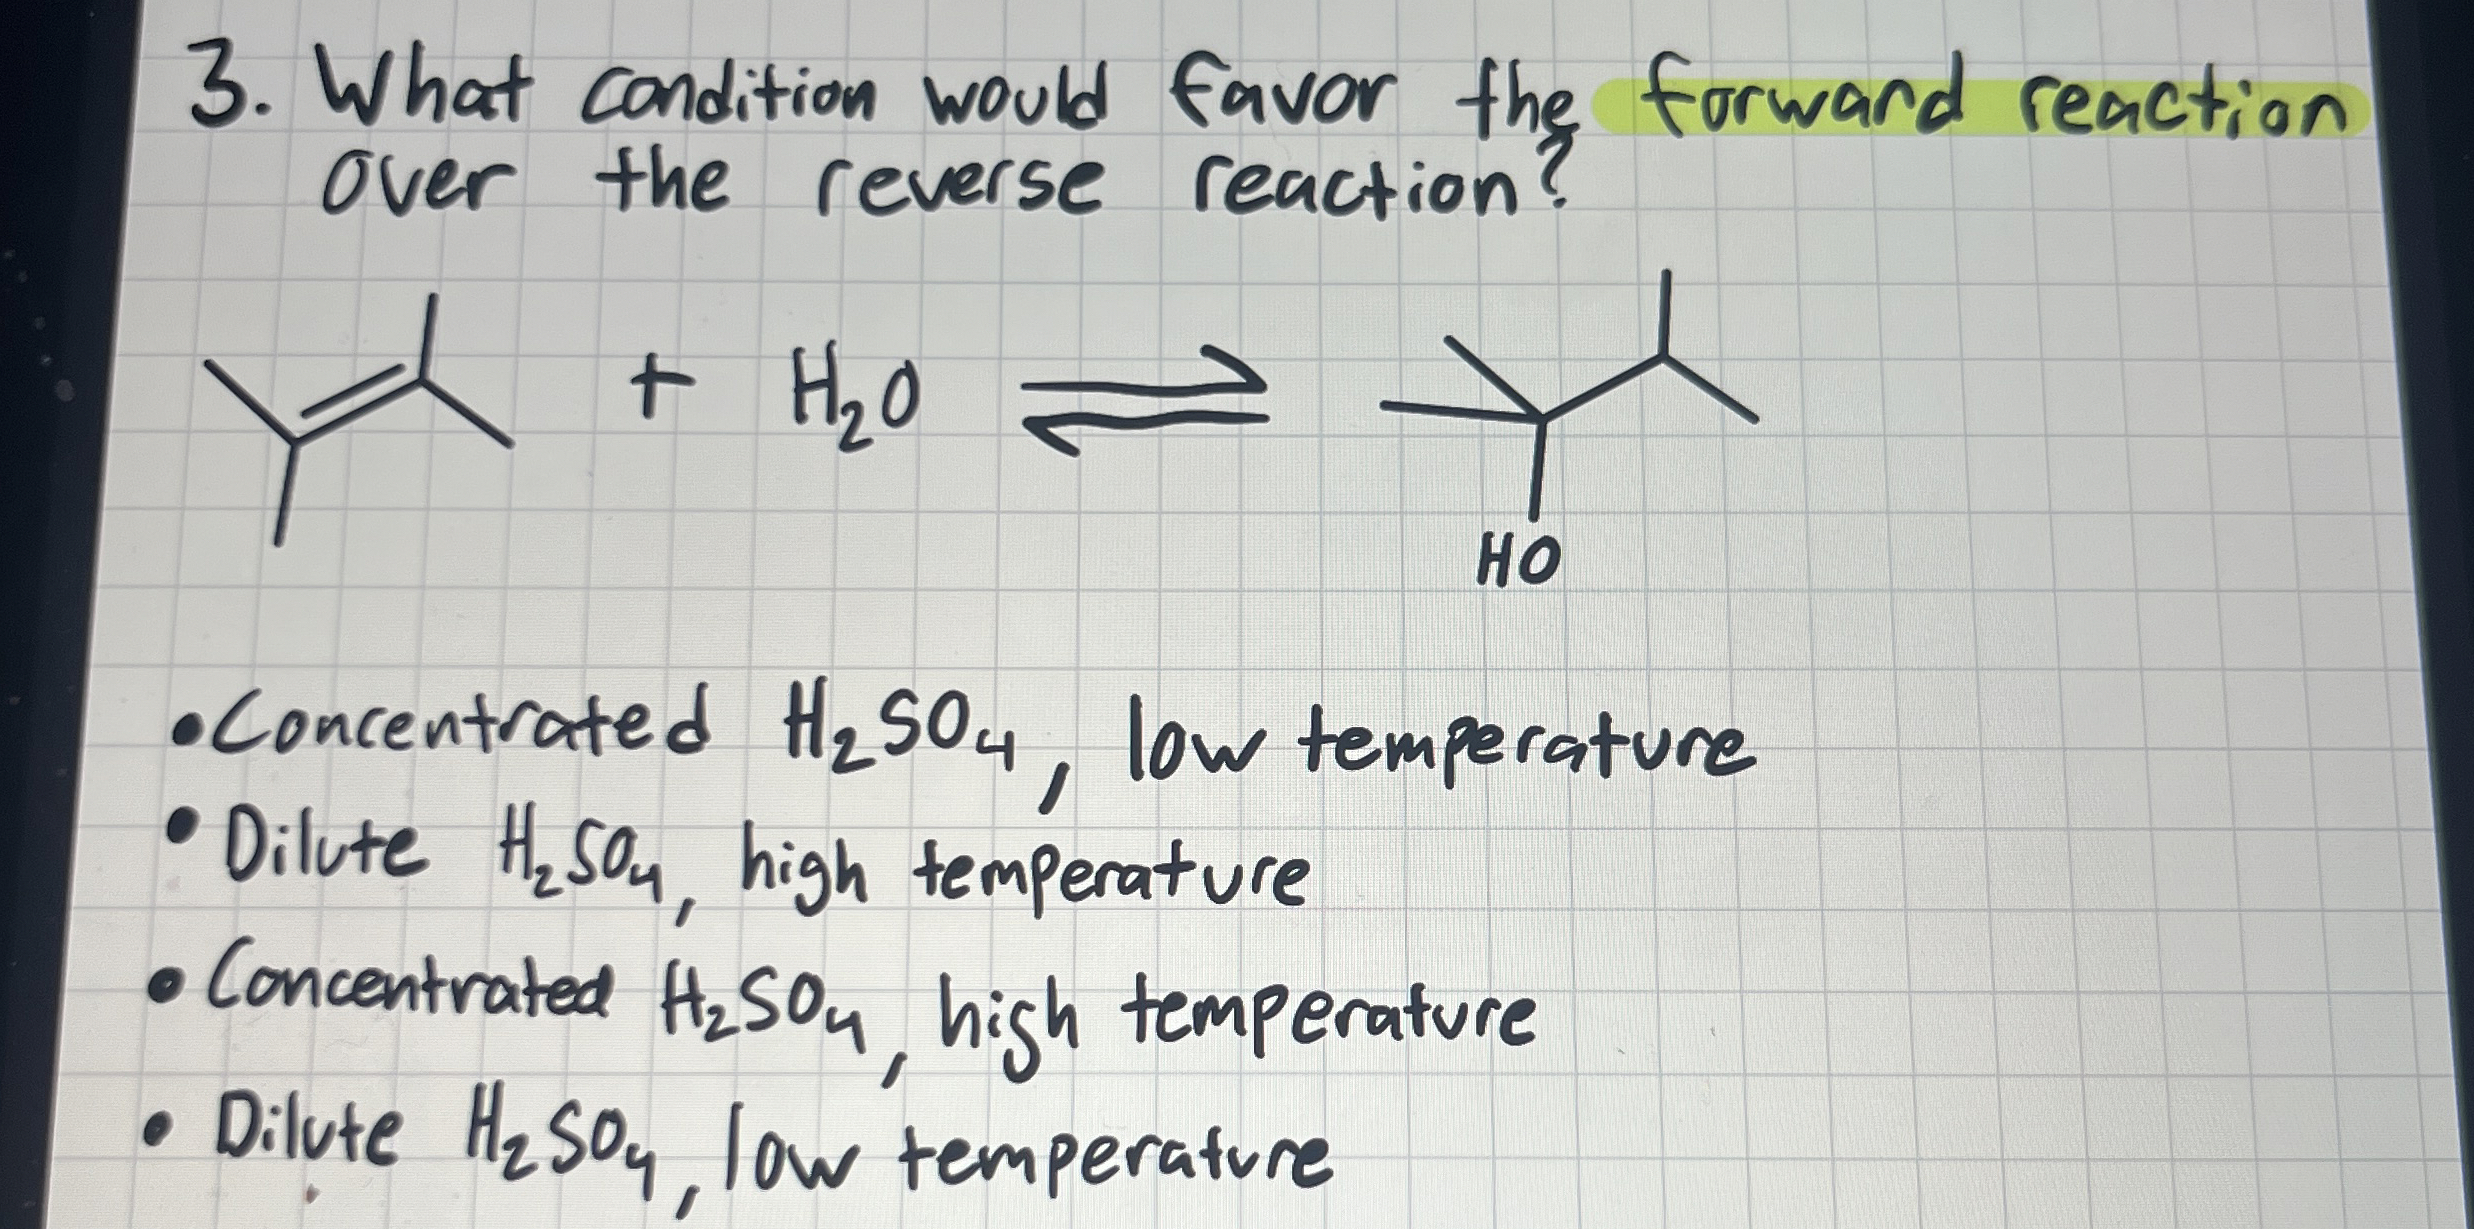 3. What condition would favor the forward reaction
over the reverse reaction?
+ H₂O ⇌
HO
• Concentrated H₂SO₄, low temperature
• Dilute H₂SO₄, high temperature
• Concentrated H₂SO₄, high temperature
• Dilute H₂SO₄, low temperature